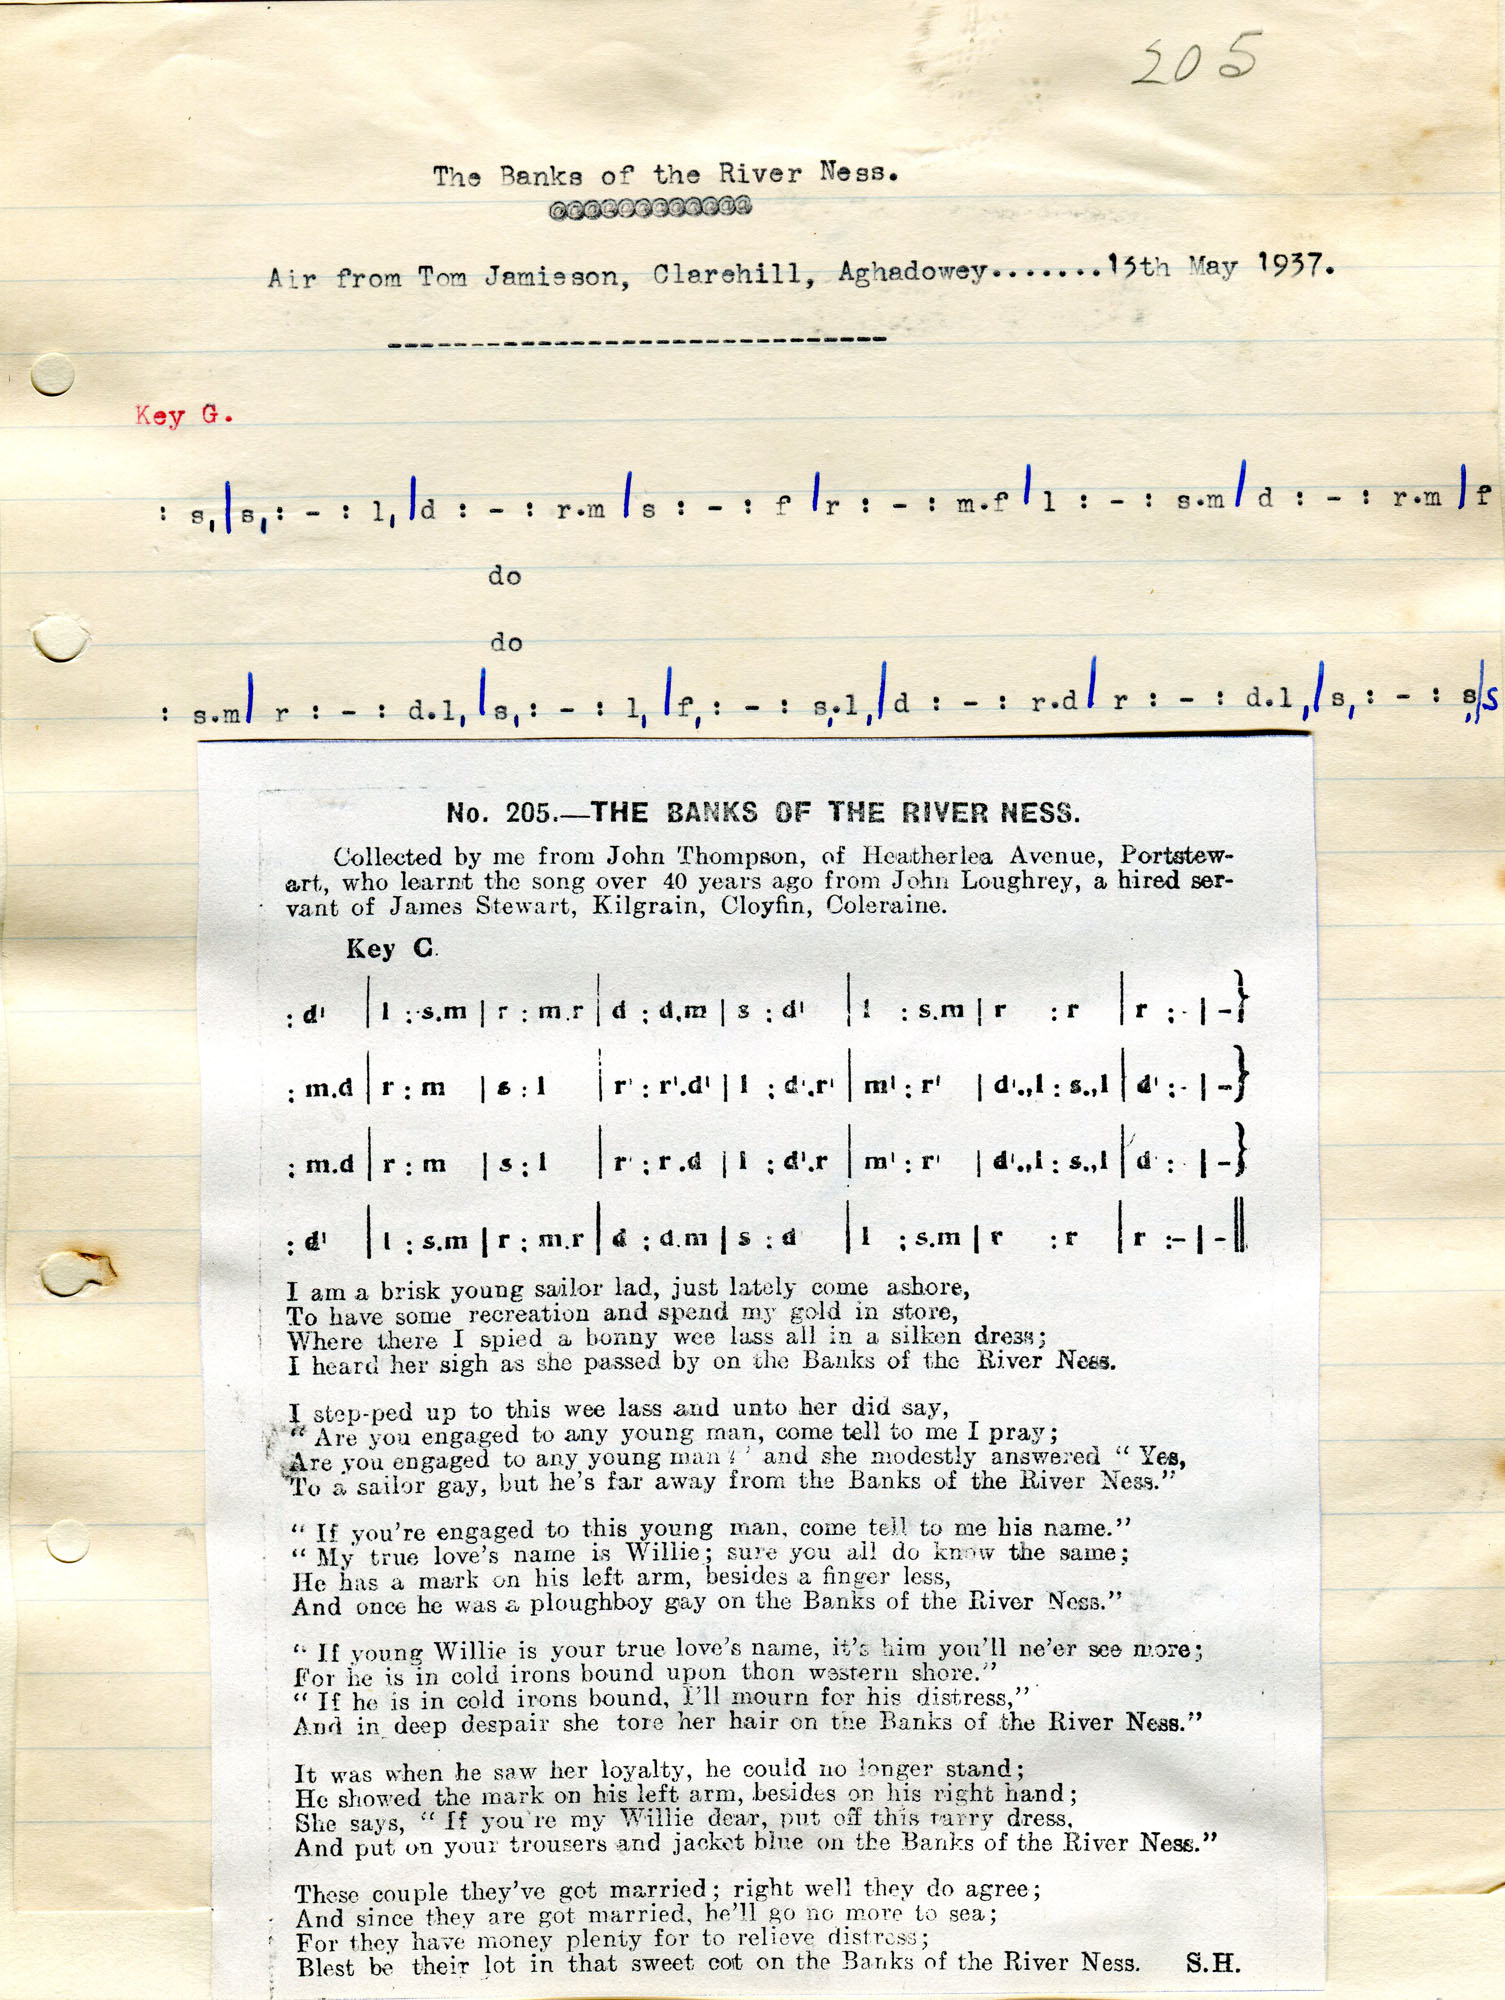 205
The Banks of the River Ness.
@@@@@@@@@@@@
Air from Tom Jamieson, Clarehill, Aghadowey.......15th May 1937.
------------------------------
Key G.
: s,|s,: - : l,|d : - : r.m|s : - : f|r : - : m.f|l : - : s.m|d : - : r.m|f
do
do
: s.m|r : - : d.l,|s,: - : l,|f,: - : s,.l,|d : - : r.d|r : - : d.l,|s,: - : s,|s
No. 205.—THE BANKS OF THE RIVER NESS.
Collected by me from John Thompson, of Heatherlea Avenue, Portstew-
art, who learnt the song over 40 years ago from John Loughrey, a hired ser-
vant of James Stewart, Kilgrain, Cloyfin, Coleraine.
Key C.
: d' | l : s.m | r : m.r | d : d.m | s : d' | l : s.m | r : r | r : - | - }
: m.d | r : m | s : l | r' : r'.d' | l : d'.r' | m' : r' | d'.,l : s.,l | d' : - | - }
: m.d | r : m | s : l | r' : r'.d | l : d'.r | m' : r' | d'.,l : s.,l | d' : - | - }
: d' | l : s.m | r : m.r | d : d.m | s : d | l : s.m | r : r | r : – | - ||
I am a brisk young sailor lad, just lately come ashore,
To have some recreation and spend my gold in store,
Where there I spied a bonny wee lass all in a silken dress;
I heard her sigh as she passed by on the Banks of the River Ness.
I step-ped up to this wee lass and unto her did say,
“ Are you engaged to any young man, come tell to me I pray;
Are you engaged to any young man?” and she modestly answered “ Yes,
To a sailor gay, but he’s far away from the Banks of the River Ness.”
“ If you’re engaged to this young man, come tell to me his name.”
“ My true love’s name is Willie; sure you all do know the same;
He has a mark on his left arm, besides a finger less,
And once he was a ploughboy gay on the Banks of the River Ness.”
“ If young Willie is your true love’s name, it’s him you’ll ne’er see more;
For he is in cold irons bound upon thon western shore.”
“ If he is in cold irons bound, I’ll mourn for his distress,”
And in deep despair she tore her hair on the Banks of the River Ness.”
It was when he saw her loyalty, he could no longer stand;
He showed the mark on his left arm, besides on his right hand;
She says, “ If you’re my Willie dear, put off this tarry dress,
And put on your trousers and jacket blue on the Banks of the River Ness.”
These couple they’ve got married; right well they do agree;
And since they are got married, he’ll go no more to sea;
For they have money plenty for to relieve distress;
Blest be their lot in that sweet cot on the Banks of the River Ness. S.H.